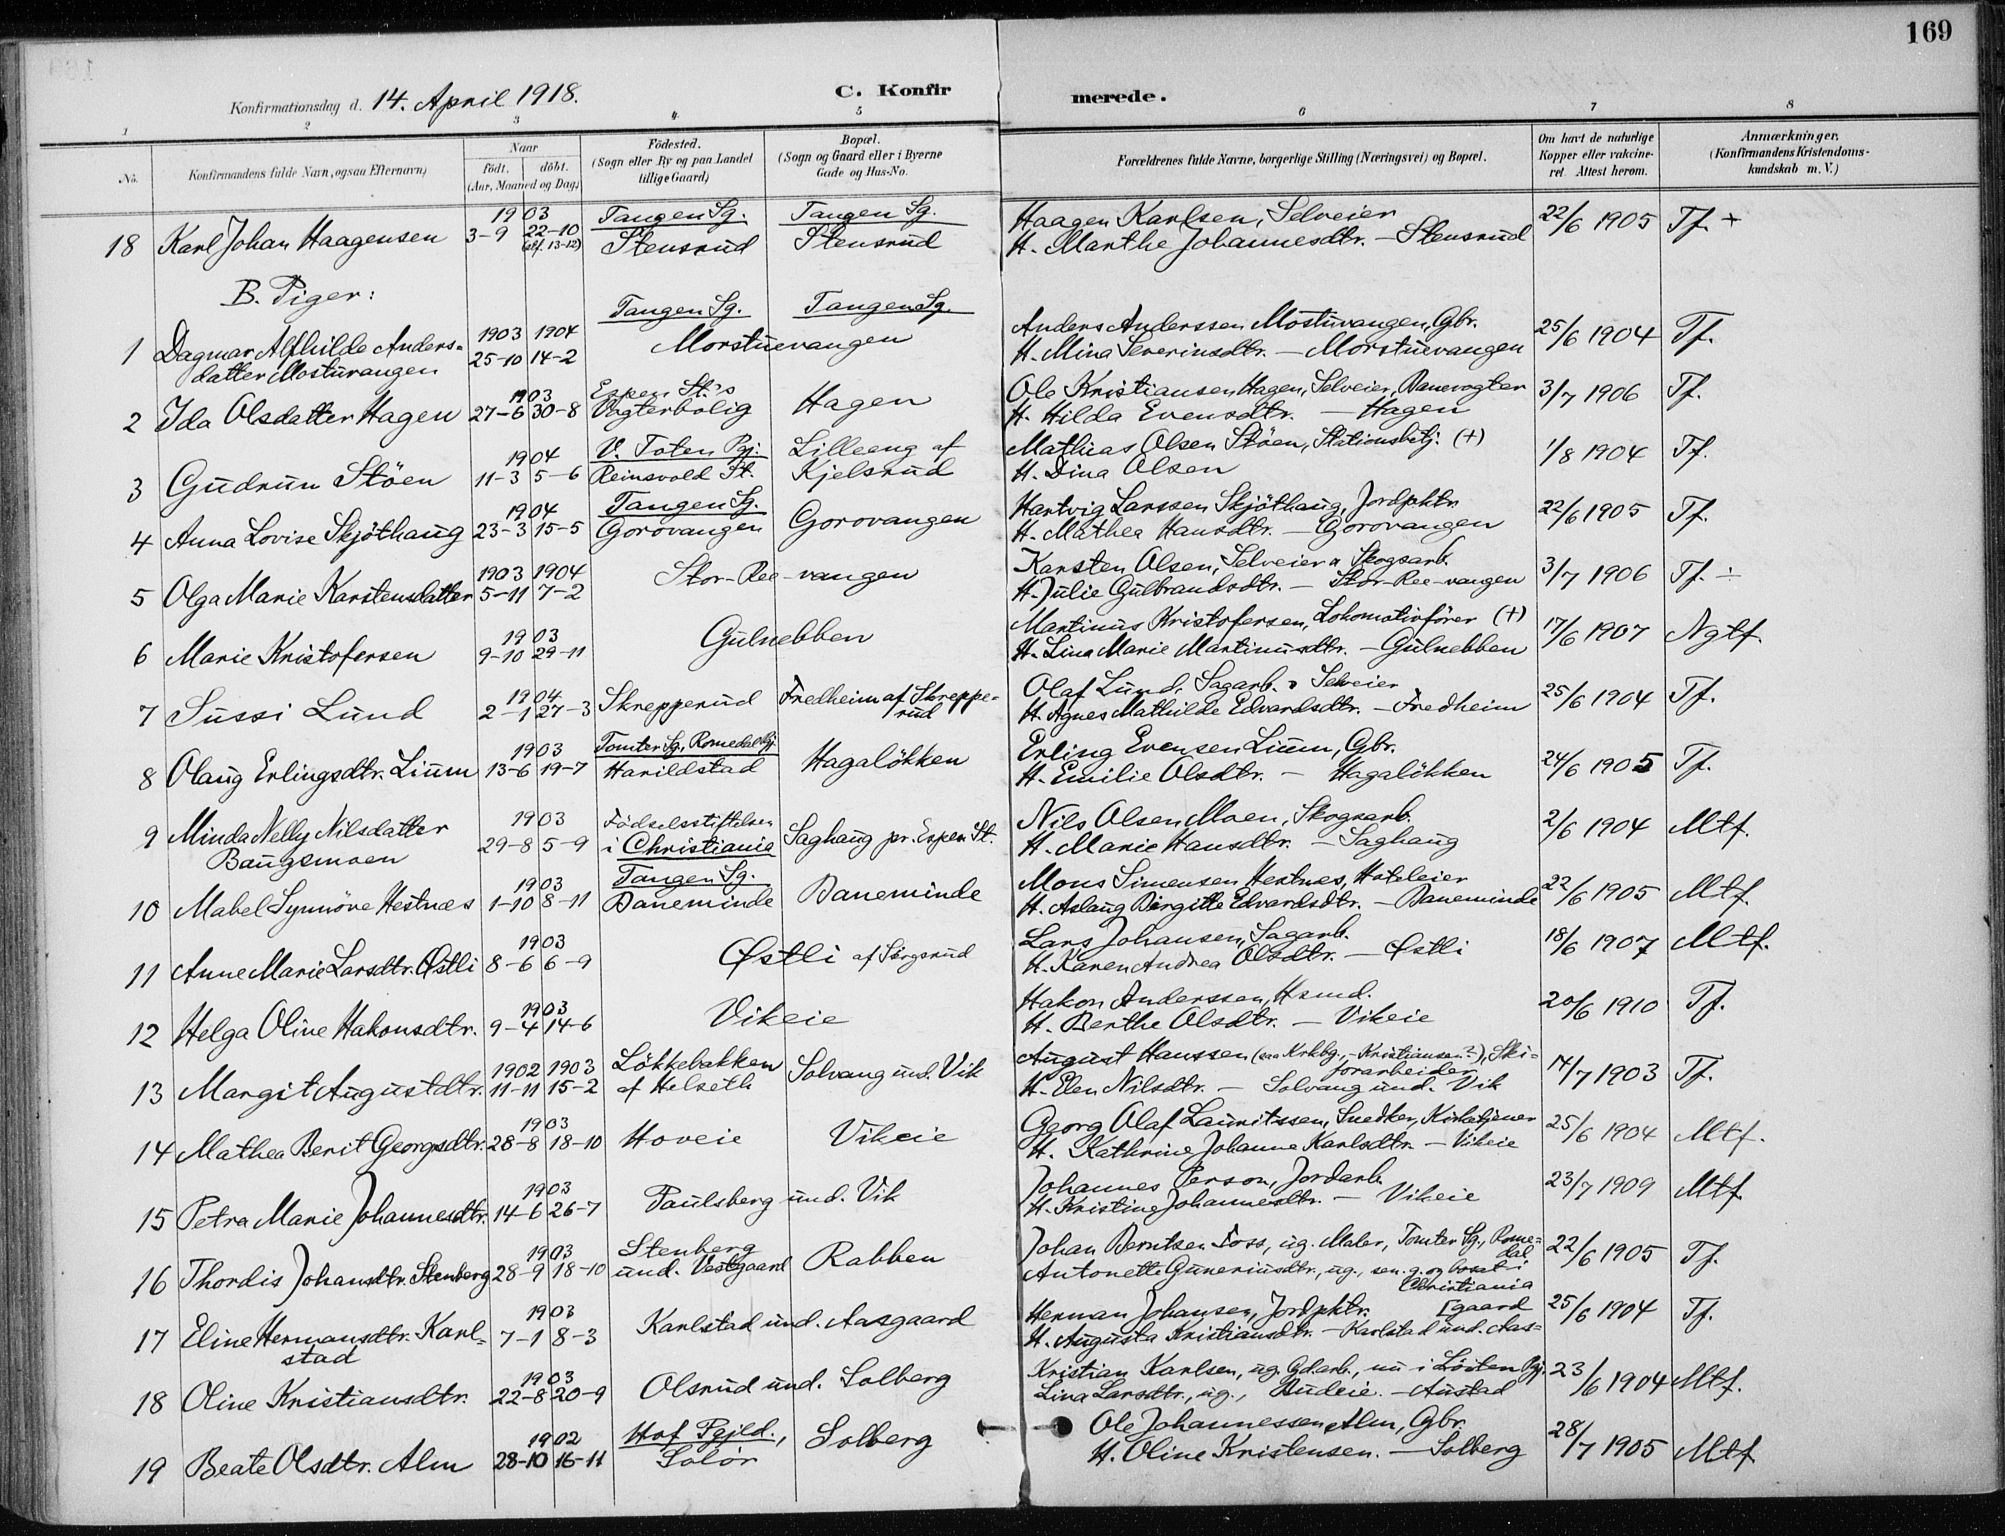 169
Konfirmationsdag d. 14. April 1918. C. Konfir merede.
1 2 3 4 5 6 7 8
No. Konfirmandens fulde Navn, ogsaa Efternavn) Naar födt. döbt. (Aar, Maaned og Dag) Födested. (Sogn eller By og paa Landet tillige Gaard) Bopæl. (Sogn og Gaard eller i Byerne Gade og Hus-No. Forældrenes fulde Navne, borgerlige Stilling (Næringsvei) og Bopæl. Om havt de naturlige Kopper eller vakcineret. Attest herom. Anmærkninger. (Konfirmandens Kristendomskundskab m. V.)
1903 Tangen Sg. Tangen Sg. Haagen Karlsen, Selveier 22/6 1905 Tf. +
18 Karl Johan Haagensen 3-9 22-10 Stensrud Stensrud H. Marthe Johannesdtr. - Stensrud
B. Piger:
Tangen Sg. Tangen Sg.
1903 1904 Anders Anderssen Mostuvangen, Gbr. 25/6 1904 Tf.
1 Dagmar Alfhilde Anders= 25-10 14-2 Morstuevangen H. Mina Severinsdtr. - Morstuevangen
datter Mostuvangen
1903 Espen St.'s Ole Kristiansen Hagen, Selveier, Banevogter 3/7 1906 Tf.
2 Ida Olsdatter Hagen 27-6 30-8 Vogterbolig Hagen H. Hilda Evensdtr. - Hagen
1904 V. Toten Pgj. Lilleeng af Mathias Olsen Stöen, Stationsbetj. (+) 1/8 1904 Tf.
3 Gudrun Stöen 11-3 5-6 Reinsvold St. Kjelsrud H. Dina Olsen
1904 Tangen Sg. Hartvig Larssen Skjöthaug, Jordpktr. 22/6 1905 Tf.
4 Anna Lovise Skjöthaug 23-3 15-5 Gorovangen Gorovangen H. Mathea Hansdtr. - Gorovangen
1903 1904 Stor-Ree-vangen Karsten Olsen, Selveier & Skogsarb. 3/7 1906 Tf. ÷
5 Olga Marie Karstensdatter 5-11 7-2 H. Julie Gulbrandsdtr. - Stor-Ree-vangen
1903 Gulnebben Martinus Kristofersen, Lokomotivförer (+) 17/6 1907 Ngtf.
6 Marie Kristofersen 9-10 29-11 H. Lina Marie Martinusdtr. - Gulnebben
1904 Skrepperud Fredheim af Skreppe= Olaf Lund, Sagarb. & Selveier 25/6 1904 Tf.
7 Sussi Lund 2-1 27-3 rud H. Agnes Mathilde Edvardsdtr. - Fredheim
1903 Tomter Sg., Romedal Pgj. Erling Evensen Lium, Gbr. 24/6 1905 Tf.
8 Olaug Erlingsdtr. Lium 13-6 19-7 Harildstad Hagalökken H. Emilie Olsdtr. - Hagalökken
1903 Födselsstiftelsen Nils Olsen Moen, Skogsarb. 2/6 1904 Mtf.
9 Minda Nelly Nilsdatter 29-8 5-9 i Christiania Saghaug pr. Espen St. H. Marie Hansdtr. - Saghaug
Baugsmoen
1903 Tangen Sg. Mons Simensen Hestnes, Hoteleier 22/6 1905 Mtf.
10 Mabel Synnöve Hestnæs 1-10 8-11 Daneminde Daneminde H. Aslaug Birgitte Edvardsdtr. - Daneminde
1903 Lars Johansen, Sagarb. 18/6 1907 Mtf.
11 Anne Marie Larsdtr. Østli 8-6 6-9 Østli af Sörgsrud H. Karen Andrea Olsdtr. - Østli
1903 Vikeie Hakon Anderssen, Hsmd. 20/6 1910 Tf.
12 Helga Oline Hakonsdtr. 9-4 14-6 H. Berthe Olsdtr. - Vikeie
1902 1903 Lökkebakken Solvang und. Vik August Hanssen (saa Krkbg., - Kristiansen?), Ski= 14/7 1903 Tf.
forarbeider
13 Margit Augustdtr. 11-11 15-2 af Helseth H. Elen Nilsdtr. - Solvang und. Vik
1903 Georg Olaf Lauritssen, Snedker, Kirketjener 25/6 1904 Mtf.
14 Mathea Berit Georgsdtr. 28-8 18-10 Hoveie Vikeie H. Kathrine Johanne Karlsdtr. - Vikeie
1903 Paulsberg und. Vik Johannes Person, Jordarb. 23/7 1909 Mtf.
15 Petra Marie Johannesdtr. 14-6 26-7 H. Kristine Johannesdtr. - Vikeie
1903 Stenberg Johan Berntsen Foss, ug. Maler, Tomter Sg., Rome= 22/6 1905 Tf.
dal
16 Thordis Johansdtr. Stenberg 28-9 18-10 und. Vestgaard Rabben Antonette Guneriusdtr., ug., sen. g. og bosat i
Christiania
1903 Karlstad und. Aasgaard Herman Johansen, Jordpktr. [gaard 25/6 1904 Tf.
17 Eline Hermansdtr. Karl= 7-1 8-3 H. Augusta Kristiansdtr. - Karlstad und. Aas=
stad
1903 Olsrud und. Solberg Kristian Karlsen, ug. Gdarb., nu i Löiten Pgj. 23/6 1904 Mtf.
18 Oline Kristiansdtr. 22-8 20-9 Lina Larsdtr., ug., Budeie. - Austad
1902 Hof Pgjld., Ole Johannessen Alm, Gbr. 28/7 1905 Mtf
19 Beate Olsdtr. Alm 28-10 16-11 Solör Solberg H. Oline Kristensen. - Solberg